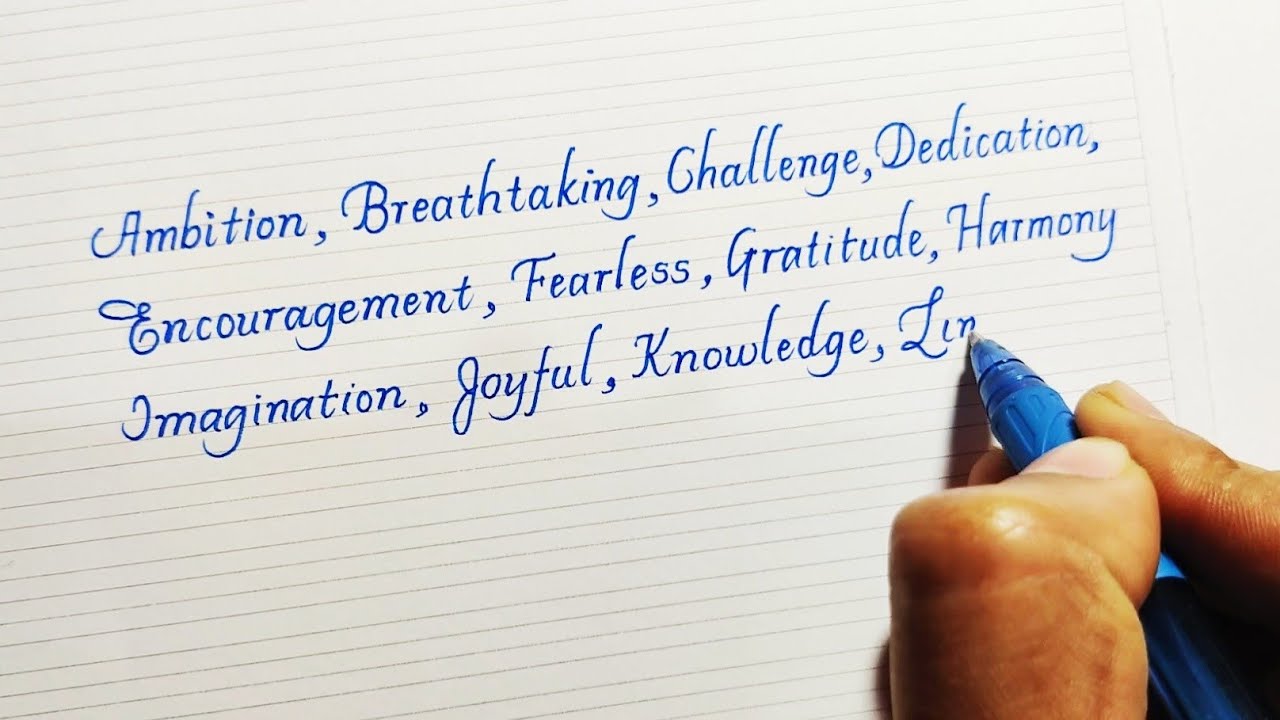 Ambition, Breathtaking, Challenge, Dedication,
Encouragement, Fearless, Gratitude, Harmony
Imagination, Joyful, Knowledge, Lin